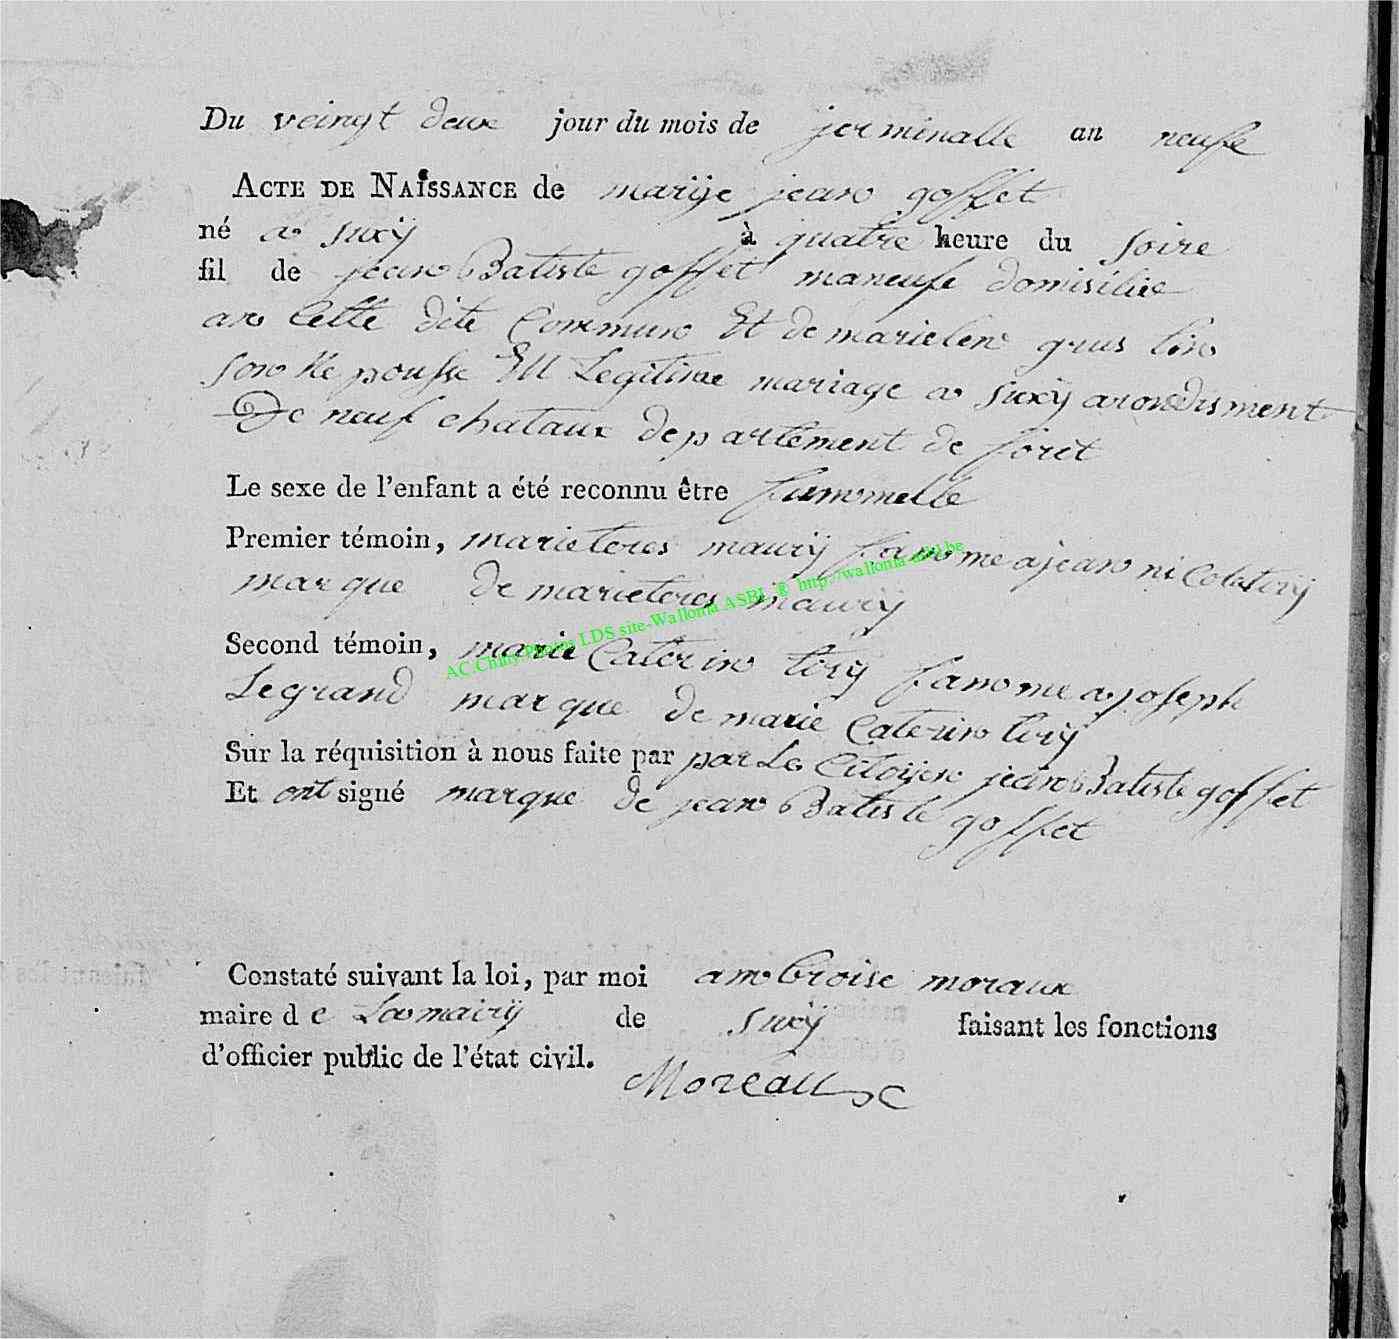 Du veingt deux jour du mois de jerminalle an neufe
ACTE DE NAISSANCE de marije jean goffet
né a suxÿ à quatre heure du soire
fil de jean Batiste goffet maneufe domisiliée
an Cette dite Commun Et de marielen grus
son Ke pousse EM Legitime mariage a suxÿ arondisment
De neuf chataux departement de foret
Le sexe de l'enfant a été reconnu être fammelle
Premier témoin, marieteres maurÿ famme a jean nicolatory
marque de marieteres maurÿ
Second témoin, marie Caterin tory famme a joseph
Legrand marque de marie Caterin tory
Sur la réquisition à nous faite par par Le Citoijen jean Batiste goffet
Et ont signé marque de jean Batiste goffet
AC Chiny Photos LDS site-Wallonia ASBL @ http://wallonia-asbl.be
Constaté suivant la loi, par moi ambroise moraux
maire de La mairÿ de suxÿ faisant les fonctions
d'officier public de l'état civil.
Moreaux